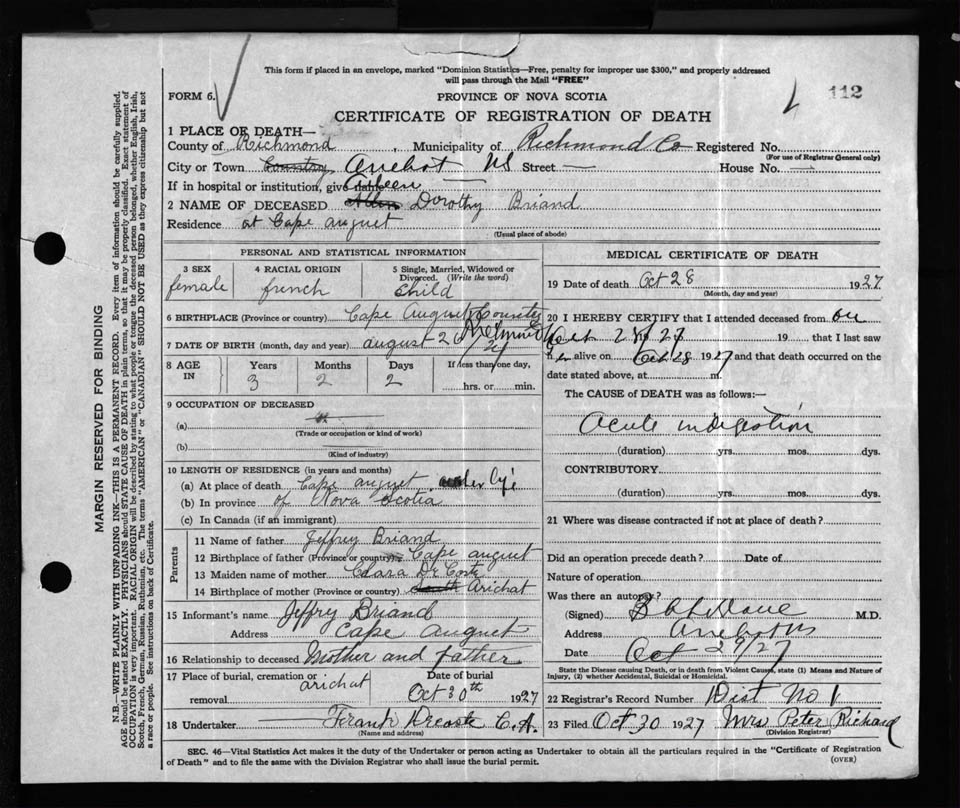 This form if placed in an envelope, marked "Dominion Statistics—Free, penalty for improper use $300," and properly addressed
will pass through the Mail "FREE"
FORM 6.
PROVINCE OF NOVA SCOTIA
112
CERTIFICATE OF REGISTRATION OF DEATH
1 PLACE OF DEATH—
County of Richmond, Municipality of Richmond Co Registered No.
(For use of Registrar General only)
City or Town Country Arichat NS Street — House No. —
If in hospital or institution, give
2 NAME OF DECEASED Dorothy Briand
Residence at Cape august
(Usual place of abode)
PERSONAL AND STATISTICAL INFORMATION
3 SEX
female
4 RACIAL ORIGIN
french
5 Single, Married, Widowed or
Divorced. (Write the word)
Child
6 BIRTHPLACE (Province or country) Cape August Country
Richmond
7 DATE OF BIRTH (month, day and year) august 2
8 AGE IN
Years Months Days If less than one day,
3 2 2 hrs. or min.
9 OCCUPATION OF DECEASED
(a)
(Trade or occupation or kind of work)
(b)
(Kind of industry)
10 LENGTH OF RESIDENCE (in years and months)
(a) At place of death Cape august life
(b) In province of Nova Scotia
(c) In Canada (if an immigrant)
Parents
11 Name of father Jeffrey Briand
12 Birthplace of father (Province or country) Cape august
13 Maiden name of mother Clara De Coste
14 Birthplace of mother (Province or country) South Arichat
15 Informant's name Jeffry Briand
Address Cape August
16 Relationship to deceased Mother and father
17 Place of burial, cremation or removal arichat
Date of burial
Oct 30th 1927
18 Undertaker Frank Decoste C.A.
(Name and address)
MEDICAL CERTIFICATE OF DEATH
19 Date of death Oct 28 1927
(Month, day and year)
20 I HEREBY CERTIFY that I attended deceased from on
Oct 28 27 19 that I last saw
h er alive on Oct 28 1927 and that death occurred on the
date stated above, at m.
The CAUSE OF DEATH was as follows:—
Acute indigestion
(duration) yrs. mos. dys.
CONTRIBUTORY
(duration) yrs. mos. dys.
21 Where was disease contracted if not at place of death?
Did an operation precede death? Date of
Nature of operation
Was there an autopsy?
(Signed) M.D.
Address Arichat NS
Date Oct 29/27
State the Disease causing Death, or in death from Violent Causes, state (1) Means and Nature of
Injury, (2) whether Accidental, Suicidal or Homicidal.
22 Registrar's Record Number Dist No 1
23 Filed Oct 30 1927 Mrs Peter Richard
(Division Registrar)
SEC. 46—Vital Statistics Act makes it the duty of the Undertaker or person acting as Undertaker to obtain all the particulars required in the "Certificate of Registration
of Death" and to file the same with the Division Registrar who shall issue the burial permit.
(OVER)
MARGIN RESERVED FOR BINDING
N.B.—WRITE PLAINLY WITH UNFADING INK—THIS IS A PERMANENT RECORD. Every item of information should be carefully supplied.
AGE should be stated EXACTLY. PHYSICIANS should STATE CAUSE OF DEATH in plain terms, so that it may be properly classified. Exact statement of
OCCUPATION is very important. RACIAL ORIGIN will be described by stating to what people or tongue the deceased person belonged, whether English, Irish,
Scotch, French, German, Russian, Ruthenian, etc. The terms "AMERICAN" or "CANADIAN" SHOULD NOT BE USED as they express citizenship but not
a race or people. See instructions on back of Certificate.